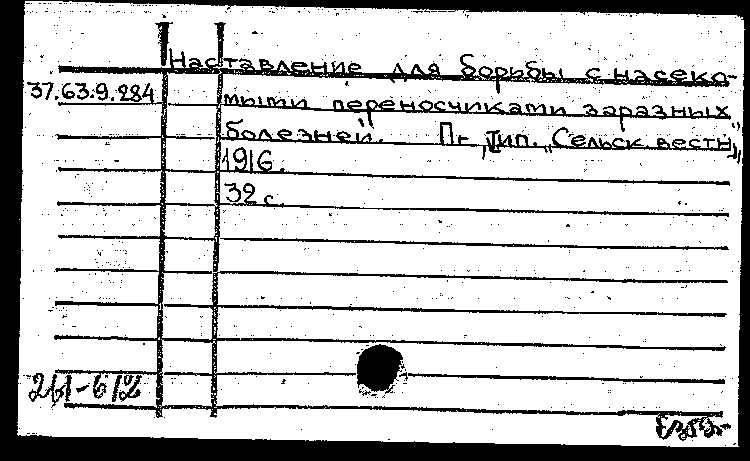 Наставление для борьбы с насеко-
37.63.9.284 мыми переносчиками заразных
болезней. Пг, Тип. „Сельск. вестн."
1916.
32 с.